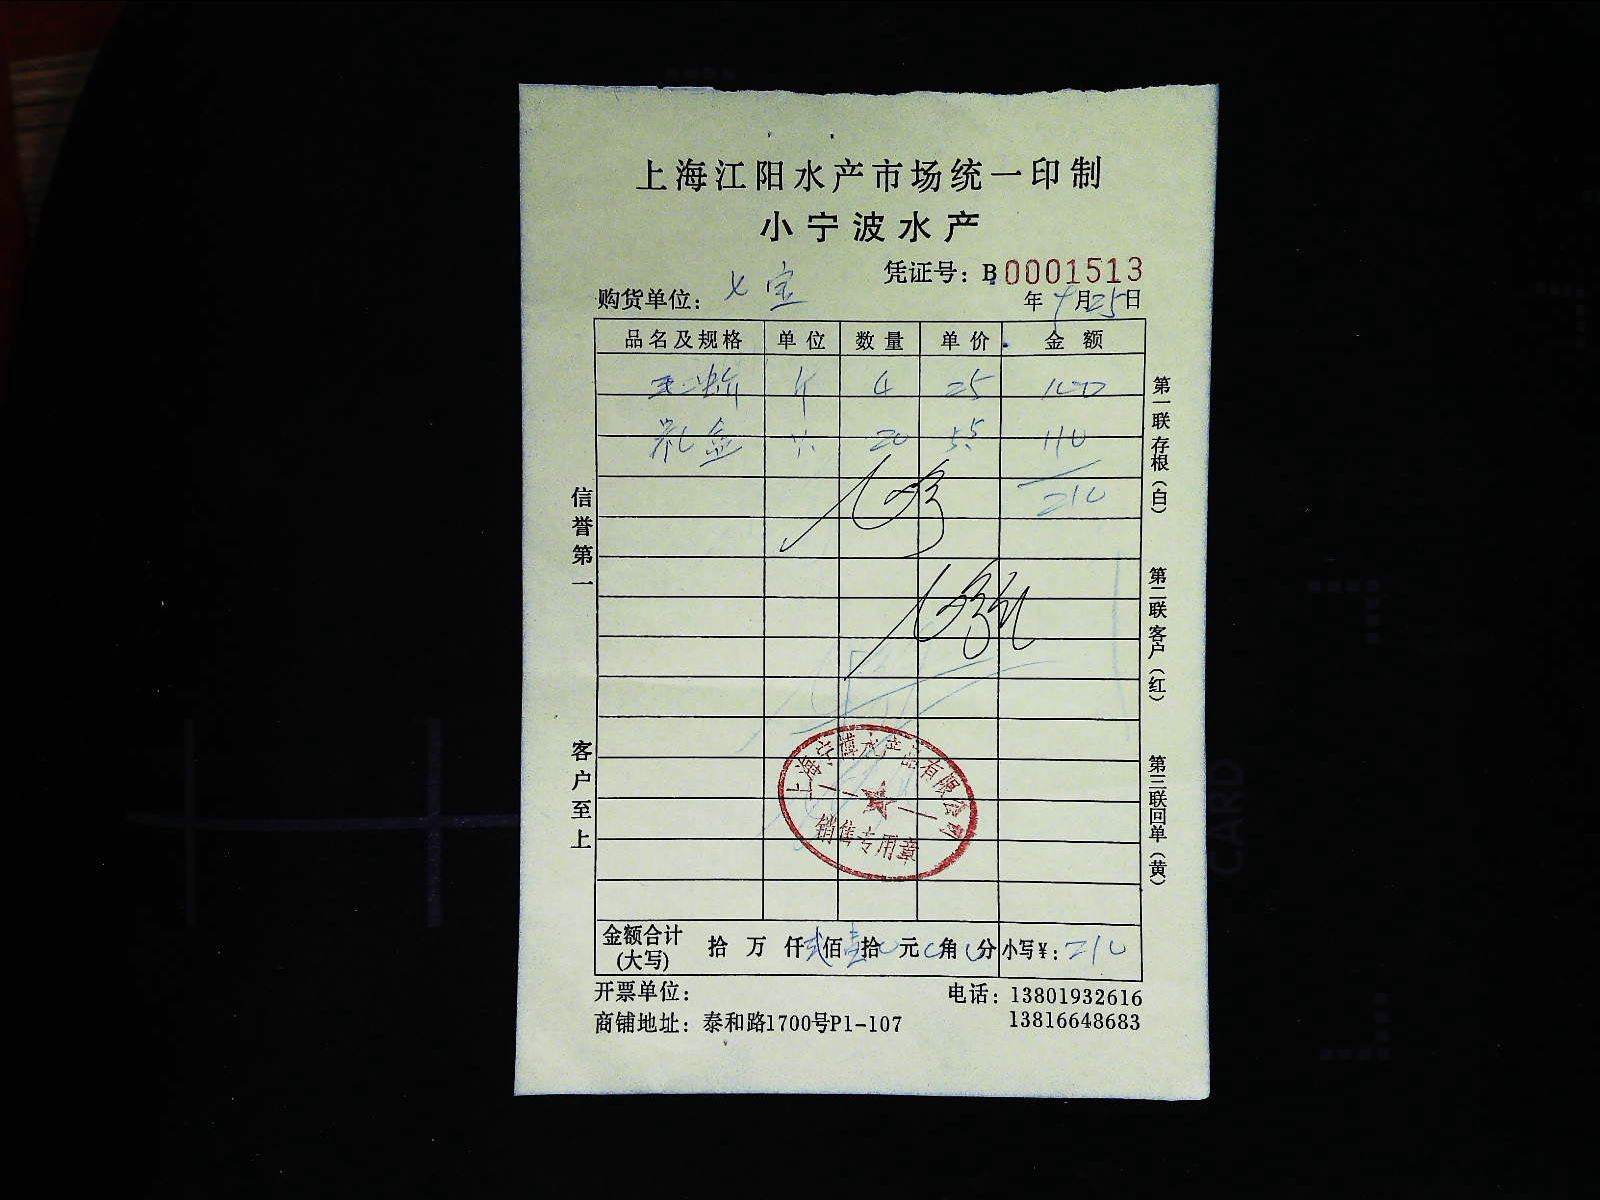 上海江阳水产市场统一印制
小宁波水产
凭证号：B 0001513
购货单位：七宝
年 9月25日
品名及规格 单位 数量 单价 金额
4 25 100
礼盒 只 20 5.5 110
210
信誉第一
客户至上
第一联 存根（白）
第二联 客户（红）
第三联 回单（黄）
上海宁博水产品有限公司
销售专用章
金额合计(大写) 拾 万 仟 贰佰 壹拾 0元 0角 0分 小写¥：210
开票单位： 电话：13801932616
商铺地址：泰和路1700号P1-107 13816648683